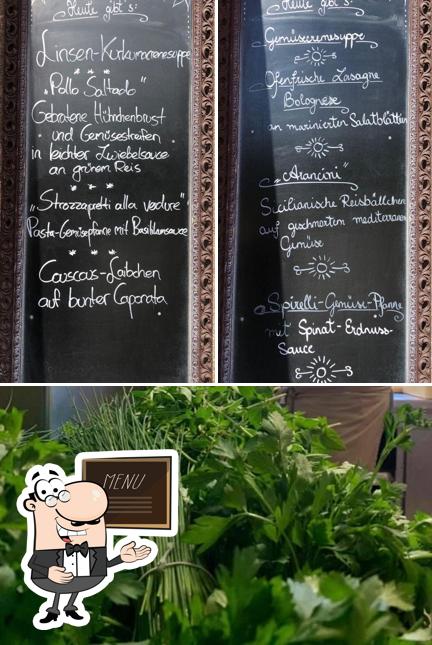 Heute gibt's:
Linsen-Kurkumacremesuppe
"Pollo Saltado"
Gebratene Hühnchenbrust
und Gemüsestreifen
in leichter Zwiebelsauce
an grünem Reis
"Strozzapretti alla verdure"
Pasta-Gemüsepfanne mit Basilikumsauce
Couscous-Laibchen
auf bunter Caponata
Heute gibt's:
Gemüsecremesuppe
Ofenfrische Lasagne
Bolognese
an marinierten Salatblättern
"Arancini"
Sizilianische Reisbällchen
auf geschmorten mediterranem
Gemüse
Spirelli-Gemüse-Pfanne
mit Spinat-Erdnuss-
Sauce
MENU